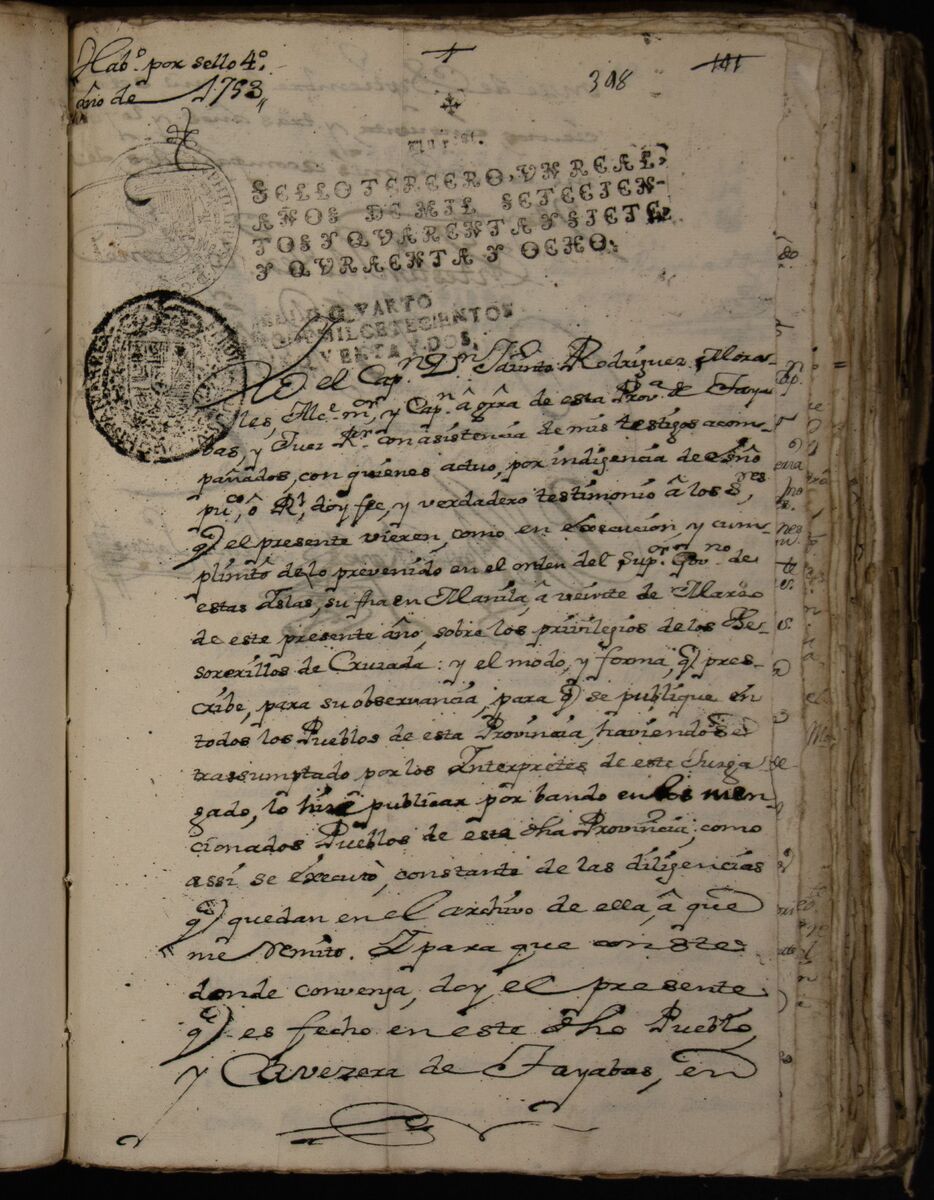 Habᵒ. por sello 4ᵒ.
año de 1753
398
141
Un real.
SELLO TERCERO, VN REAL,
AÑOS DE MIL SETECIEN-
TOS Y QVARENTA Y SIETE,
Y QVRAENTA Y OCHO.
QVARTO
MIL SETECIENTOS
Y DOS,
Yo el Capⁿ. Dⁿ. Jacinto Rodriguez Mora-
les, Alcᵉ. mᵒʳ, y Capⁿ â grra de esta Provᵃ. de Taya
bas, y Juez Rʳ con asistencia de mis testigos acom-
pañados, con quienes actuo, por indigencia de essnô
pucᵒ, ô Rˡ, doy fee, y verdadero testimonio â los Sʳᵉˢ,
q̃ el presente vieren, como en execucion, y cum-
plimtô de lo prevenido en el orden del Supᵒʳ. Govⁿᵒ. de
estas Islas, su fha en Manila, â veinte de Marzo
de este presente año, sobre los privilegios de los The-
sorerillos de Cruzada: y el modo, y forma, q̃ pres-
cribe, para su observancia, para q̃ se publique en
todos los Pueblos de esta Provincia, haviendose
trassumptado por los Interpretes de este Juzga
gado, lo hice publicar por bando en los men-
cionados Pueblos de esta dha Provincia, como
assi se executò, constante de las diligencias
qᵉ quedan en el archivo de ella, â que
me remito. Y para que conste
donde convenga, doy el presente
qᵉ es fecho en este dho Pueblo,
y Cavezera de Tayabas, en